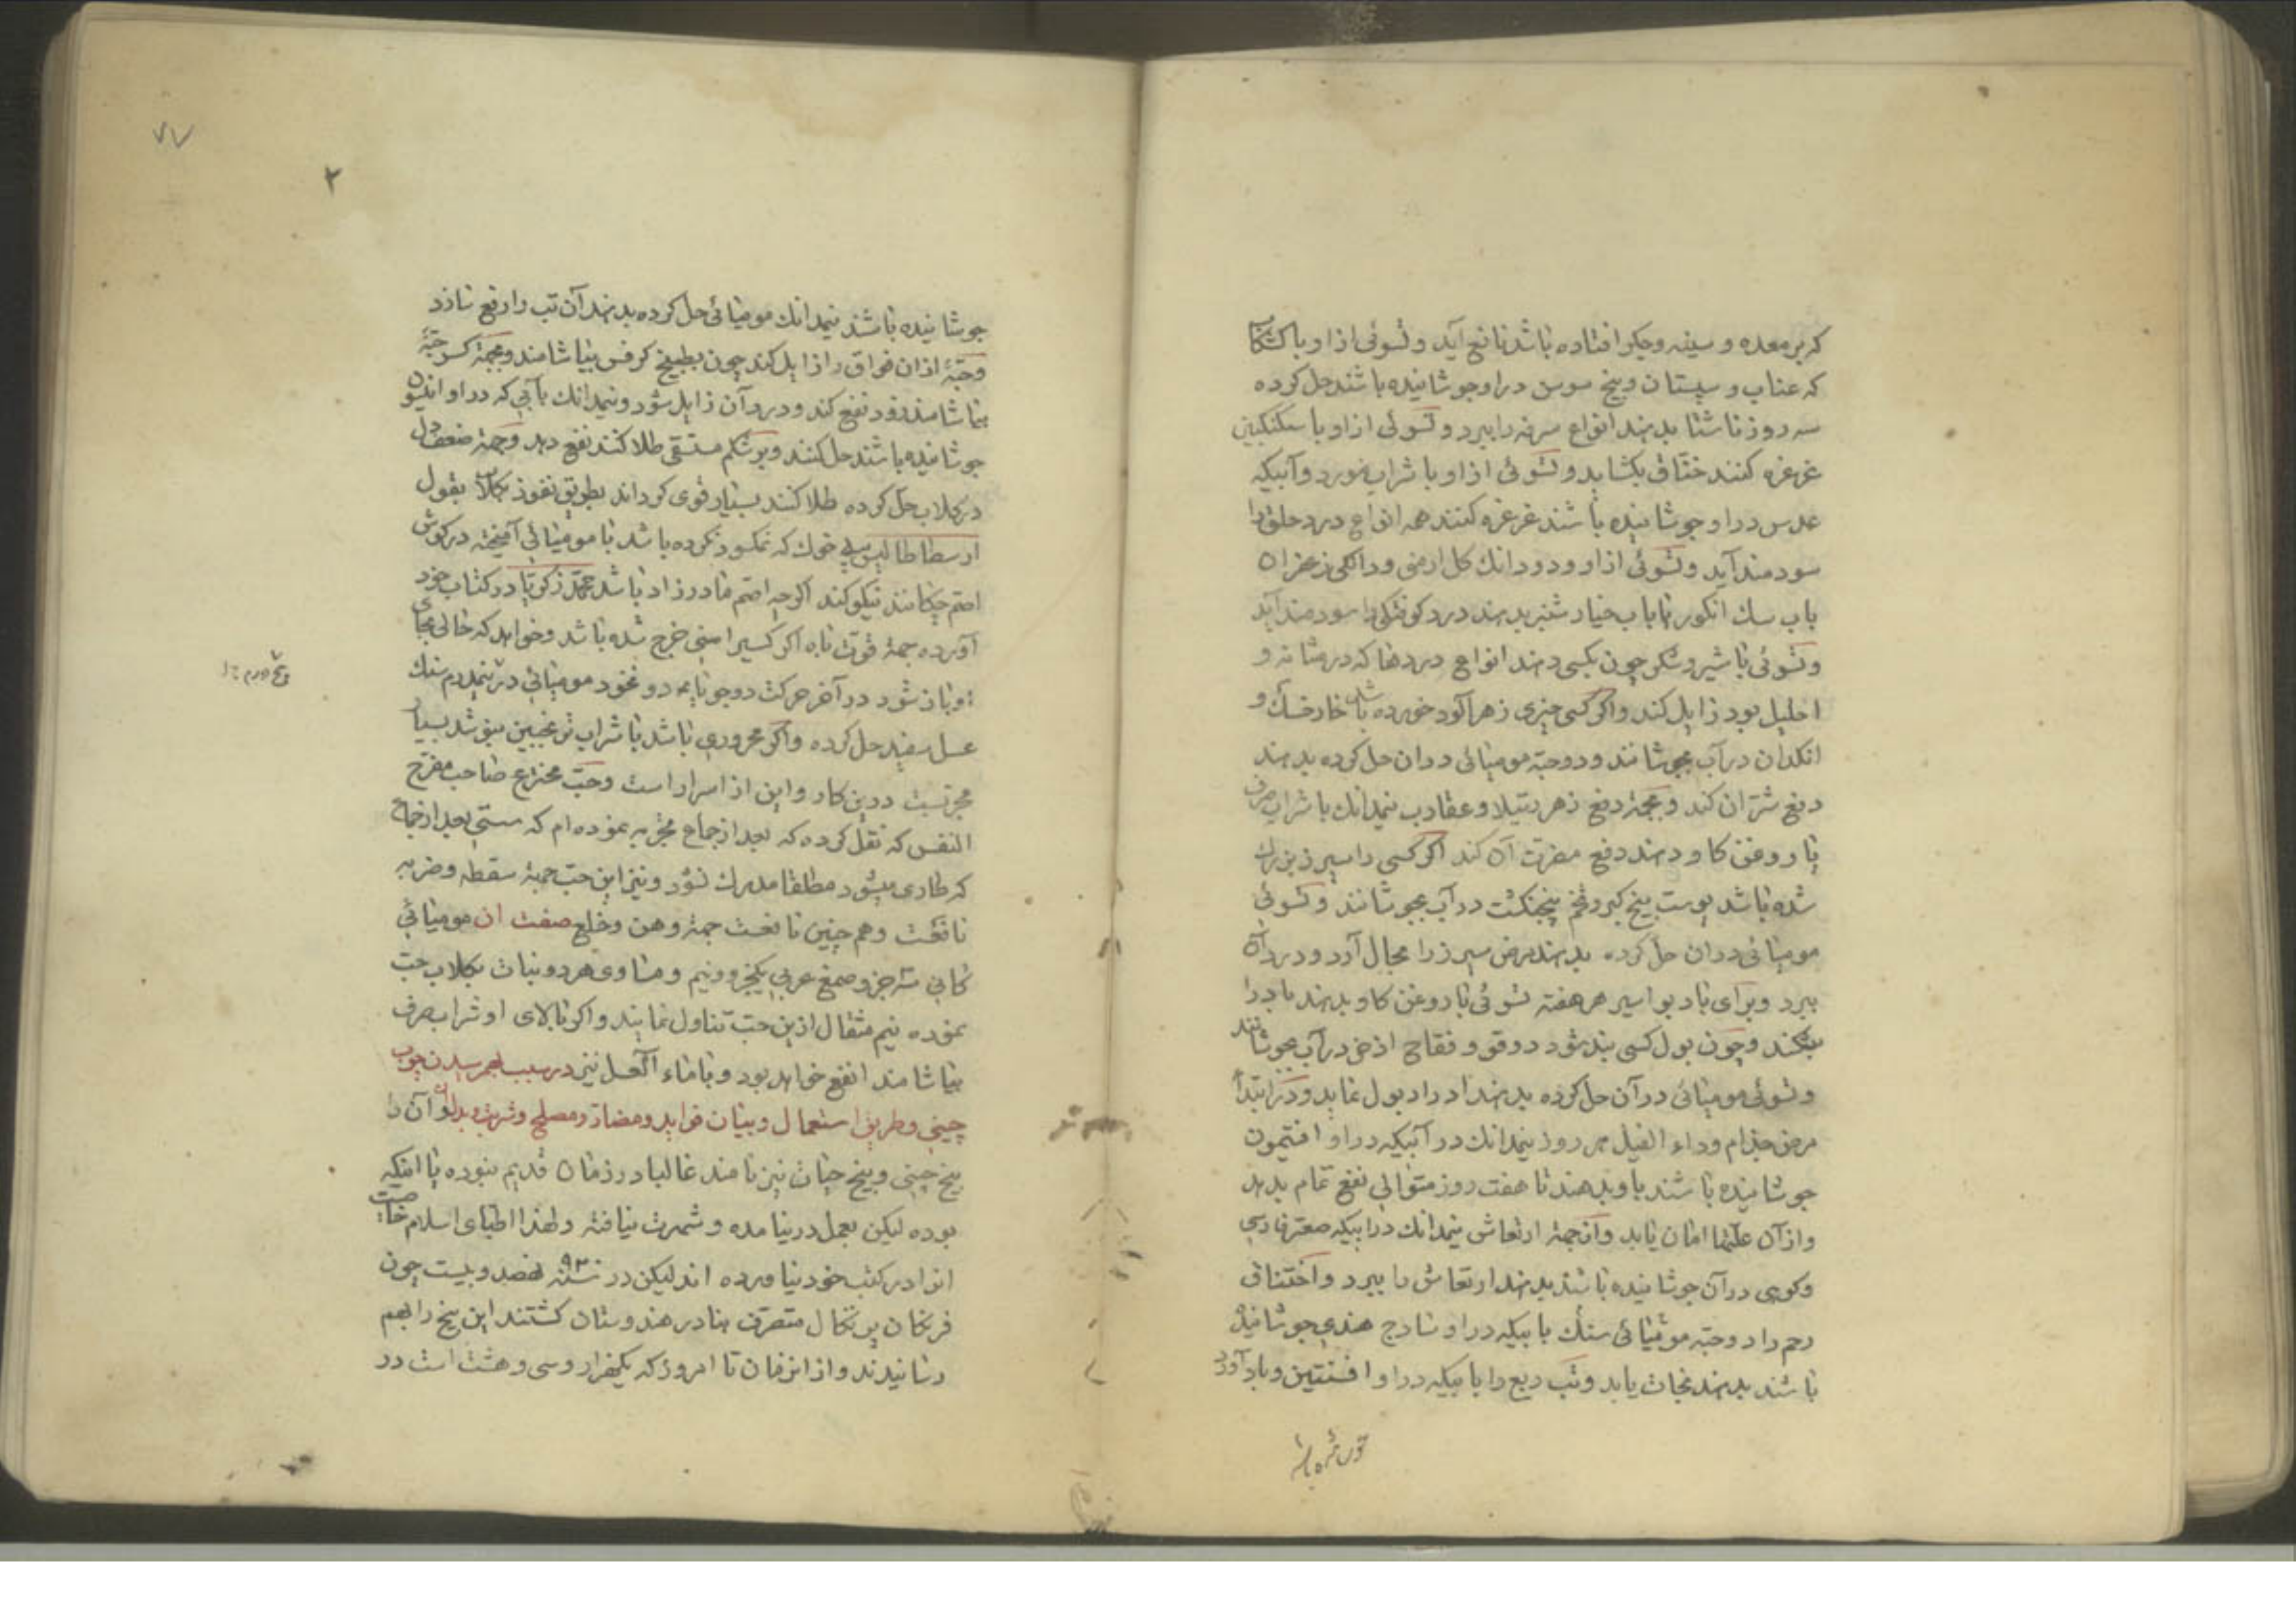 که بر معده و سینه و جگر افتاده باشد نافع آید و تسوئی ازاو با کشکاب
که عناب و سپستان و بیخ سوسن دراو جوشانیده باشند حل کرده
سه روز ناشتا بدهند انواع سرفه را ببرد و تسوئی ازاو با سکنکبین
غرغره کنند خناق بکشاید و تسوئی ازاو با شراب مورد و آبیکه
عدس دراو جوشانیده باشند غرغره کنند همه انواع درد حلق را
سودمند آید و تسوئی ازاو ودو دانك کل ارمنی ودانکی زعفران
باب سك انکور یا باب خیار شنبر بدهند درد کوفتکی را سودمند آید
و تسوئی با شیر و شکر چون بکسی دهند انواع دردها که در مثانه و
احلیل بود زایل کند واکر کسی چیزی زهرآلود خورده باشد خارخسك و
انکدان در آب بجوشانند و دو حبه مومیائی دران حل کرده بدهند
دفع شرّ آن کند و بجهة دفع زهر رتیلا و عقارب نیمدانك با شراب صرف
یا روغن کاو دهند دفع مضرت آن کند اکر کسی را سپرز بزرك
شده باشد پوست بیخ کبر و تخم پنجنکشت در آب بجوشانند و تسوئی
مومیائی دران حل کرده بدهند مرض سپرز را بحال آرد و درد آن
ببرد و برای باد بواسیر هر هفته تسوئی با روغن کاو بدهند باد را
بشکند و چون بول کسی بند شود دوقو و فقاح اذخر در آب بجوشانند
و تسوئی مومیائی در آن حل کرده بدهند ادرار بول نماید و در ابتداء
مرض جذام و داء الفیل هر روز نیمدانك در آبیکه دراو افتیمون
جوشانیده باشند باو بدهند تا هفت روز متوالی نفع تمام بدهد
و از آن علتها امان یابد و از جهة ارتعاش نیمدانك در ابیکه صعتر فارسی
و کوهی در آن جوشانیده باشند بدهند ارتعاش را ببرد و اختناق
رحم را دو حبه مومیائی بابیکه دراو سادج هندی جوشانیده
باشند بدهند نجات یابد و تب ربع را بابیکه دراو افسنتین و بادآورد
۷۷
۲
جوشانیده باشند نیمدانك مومیائی حل کرده بدهند آن تب را رفع سازد
و حبّهٔ ازان فواق را زایل کند چون بطبیخ کرفس بیاشامند و بجهة کسر حبّهٔ
بیاشامند زود نفع کند و درد آن زایل شود و نیمدانك بآبی که دراو انیسون
جوشانیده باشند حل کنند و بر شکم مستقی طلا کنند نفع دهد و جهة ضعف دل
در کلاب حل کرده طلا کنند بسیار قوی کرداند بطریق نفوذ بقول
ارسطاطالیس پیه خوك که نمکسود نکرده باشد با مومیائی آمیخته در کوش
اصم چکانند نیکو کند اکرچه اصم مادرزاد باشد محمد زکریا در کتاب خود
آورده جهة قوت باه اکر کسیرا منی خرج شده باشد و خواهد که خالی بجای
او باز شود در آخر حرکت دو جو تا بمه دو نخود مومیائی در نیمدرم سنك
عسل سفید حل کرده و اکر محروری باشد با شراب ترنجبین بنوشد بسیار
مجربست درین کار و این از اسرار است و حبّ مخترع صاحب مفرح
النفس که نقل کرده که بعد از جماع تجربه نموده‌ام که سستی بعد از جماع
که طاری میشود مطلقا مدرك نشود و نیز این حب جهة سقطه و ضربه
نافعست و هم چنین نافعست جهة وهن و خلع صفت ان مومیائی
کانی سه جزو صمغ عربی یکجزو و نیم و مساوی هردو نبات بکلاب حب
نموده نیم مثقال ازین حب تناول نمایند و اکر بالای او شراب صرف
بیاشامند انفع خواهد بود و باماء العسل نیز در سبب بهم رسیدن چوب
چینی و طریق استعمال و بیان فواید و مضار و مصلح و شربت و بدل او آن را
بیخ چینی و بیخ حیات نیز نامند غالبا در زمان قدیم نبوده یا انکه
بوده لیکن بعمل در نیامده و شهرت نیافته و لهذا اطبای اسلام خاصیت
انرا در کتب خود نیاورده اند لیکن در سنه ۹۲۰ نهصد و بیست چون
فرنکان پرتکال متصرف بنادر هندوستان کشتند این بیخ را بهم
رسانیدند و از انزمان تا امروز که یکهزار و سی و هشت است در